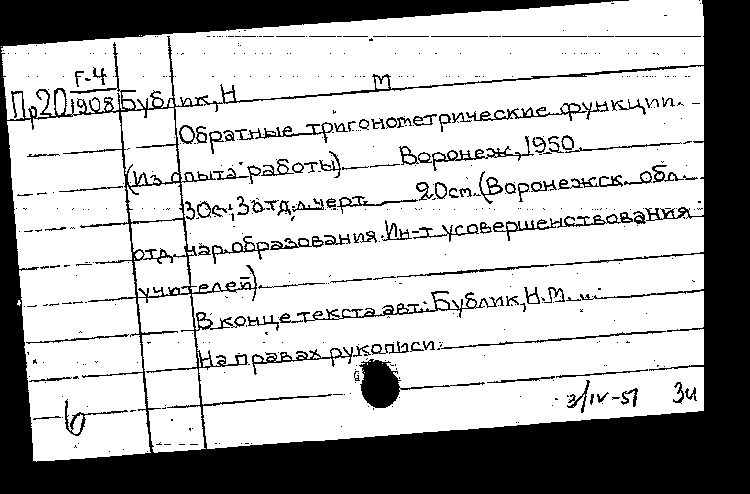 Г-4
Пр20 1908 Бублик, Н М
Обратные тригонометрические функции.
(Из опыта работы). Воронеж, 1950.
30с.; 3 отд. л. черт. 20см. (Воронежск. обл.
отд. нар. образования. Ин-т усовершенствования
учителей).
В конце текста авт.: Бублик, Н.М. ...
На правах рукописи.
3/IV-51 Зи